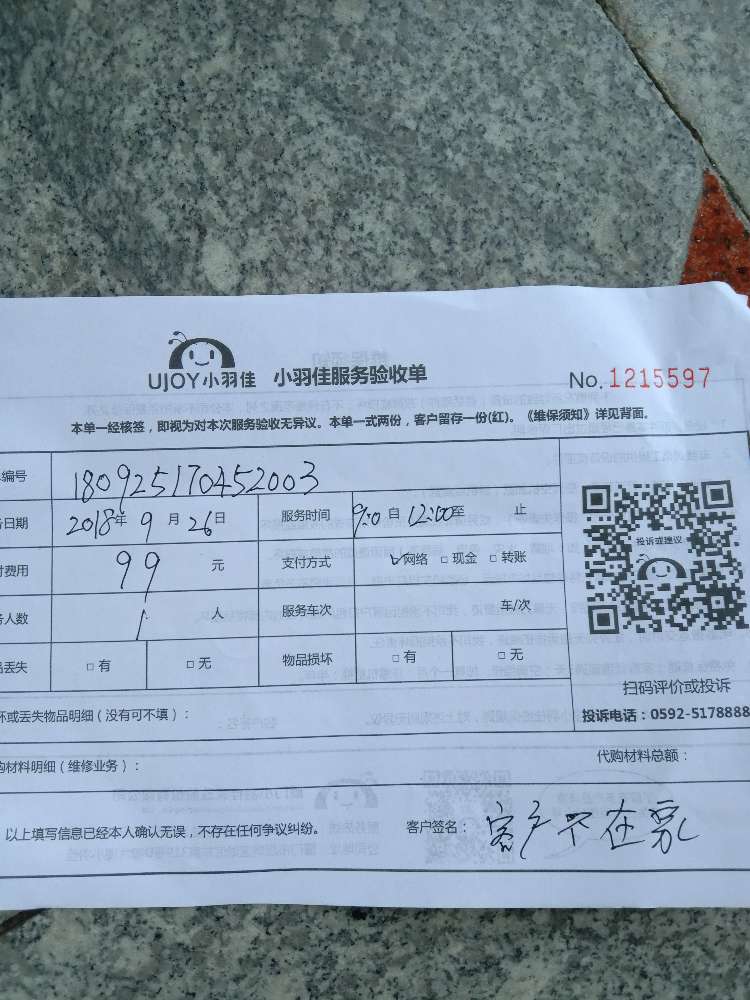 UJOY小羽佳 小羽佳服务验收单 No.1215597
本单一经核签，即视为对本次服务验收无异议。本单一式两份，客户留存一份(红)。《维保须知》详见背面。
编号 180925170452003
日期 2018年9月26日 服务时间 9:0自12:00至 止
费用 99 元 支付方式 ☑网络 □现金 □转账
人数 1 人 服务车次 车/次
丢失 □有 □无 物品损坏 □有 □无
投诉或建议
扫码评价或投诉
投诉电话：0592-5178888
坏或丢失物品明细（没有可不填）：
购材料明细（维修业务）： 代购材料总额：
以上填写信息已经本人确认无误，不存在任何争议纠纷。 客户签名：客户不在家